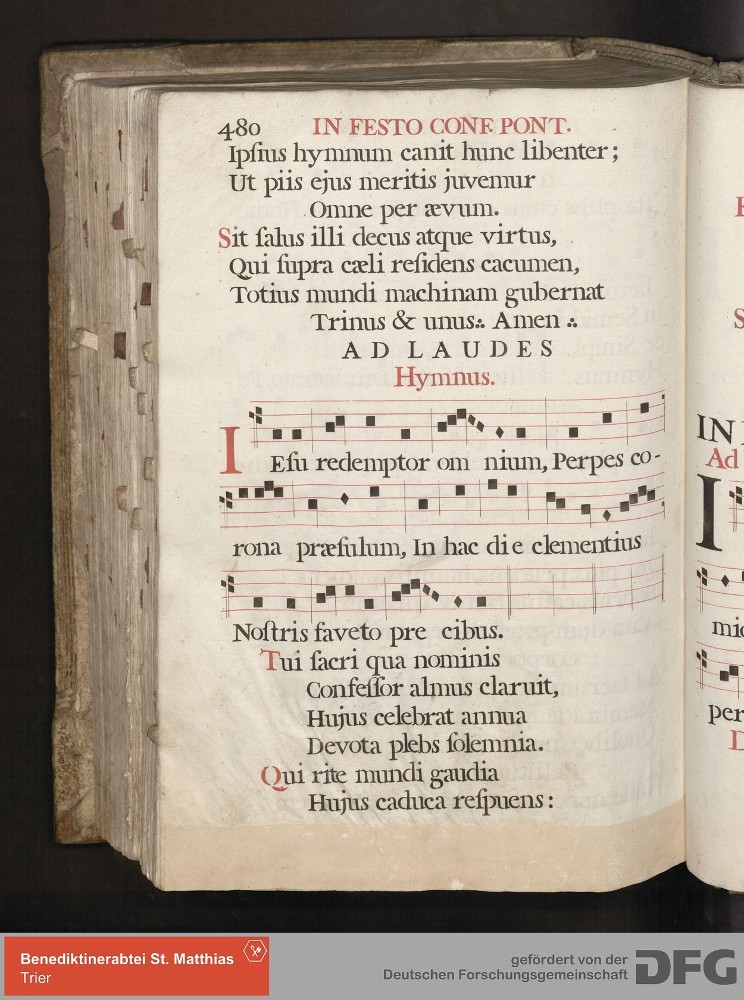 480 IN FESTO CONF PONT.
Ipſius hymnum canit hunc libenter;
Ut piis ejus meritis juvemur
Omne per ævum.
Sit ſalus illi decus atque virtus,
Qui ſupra cæli reſidens cacumen,
Totius mundi machinam gubernat
Trinus & unus⸫ Amen ⸫
AD LAUDES
Hymnus.
IEſu redemptor om nium, Perpes co-
rona præſulum, In hac die clementius
Noſtris faveto pre cibus.
Tui ſacri qua nominis
Confeſſor almus claruit,
Hujus celebrat annua
Devota plebs ſolemnia.
Qui rite mundi gaudia
Hujus caduca reſpuens:
IN
Ad
I
mic
per
Benediktinerabtei St. Matthias
Trier
gefördert von der
Deutschen Forschungsgemeinschaft
DFG